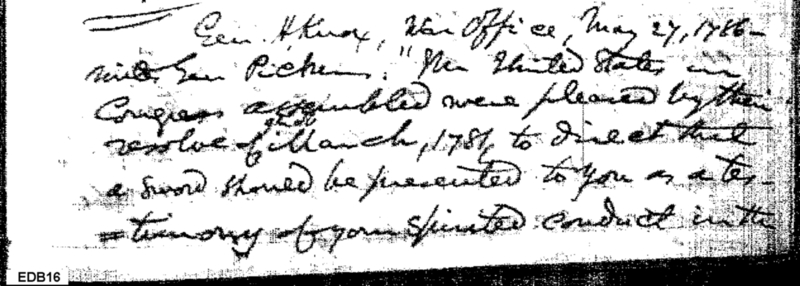 Gen. H. Knox, War Office, May 27, 1786 -
writes Gen Pickens. "The United States in
Congress assembled were pleased by their
resolve of March, 1781, to direct that
a sword should be presented to you as a tes-
=timony of your spirited conduct in the
EDB16